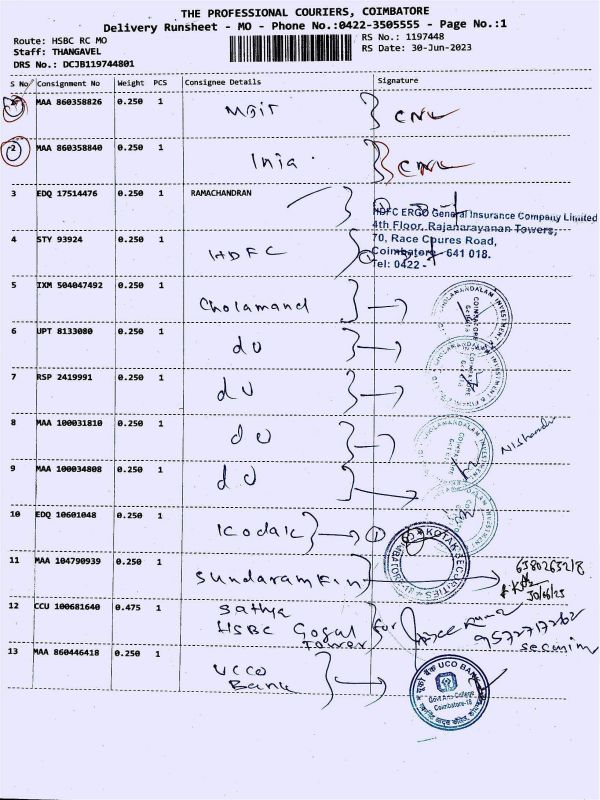 THE PROFESSIONAL COURIERS, COIMBATORE
Delivery Runsheet - MO - Phone No.:0422-3505555 - Page No.:1
Route: HSBC RC MO
Staff: THANGAVEL
DRS No.: DCJB119744801
RS No.: 1197448
RS Date: 30-Jun-2023
S No Consignment No Weight PCS Consignee Details Signature
MAA 860358826 0.250 1
2 MAA 860358840 0.250 1 India
3 EDQ 17514476 0.250 1 RAMACHANDRAN
HDFC ERGO General Insurance Company Limited
4th Floor, Rajanarayanan Towers,
70, Race Coures Road,
Coimbatore - 641 018.
Tel: 0422 -
4 STY 93924 0.250 1 HDFC
5 IXM 504047492 0.250 1 Cholamand
6 UPT 8133080 0.250 1 do
7 RSP 2419991 0.250 1 do
8 MAA 100031810 0.250 1 do
9 MAA 100034808 0.250 1 do
10 EDQ 10601048 0.250 1 Kodak 1
KOTAK SECURITIES
11 MAA 104790939 0.250 1 Sundaram Fin
30/06/23
12 CCU 100681640 0.475 1 Sathya
HSBC Gopal for
Tower
13 MAA 860446418 0.250 1 UCCO
Bank
UCO BANK
Govt Arts College
Coimbatore-18